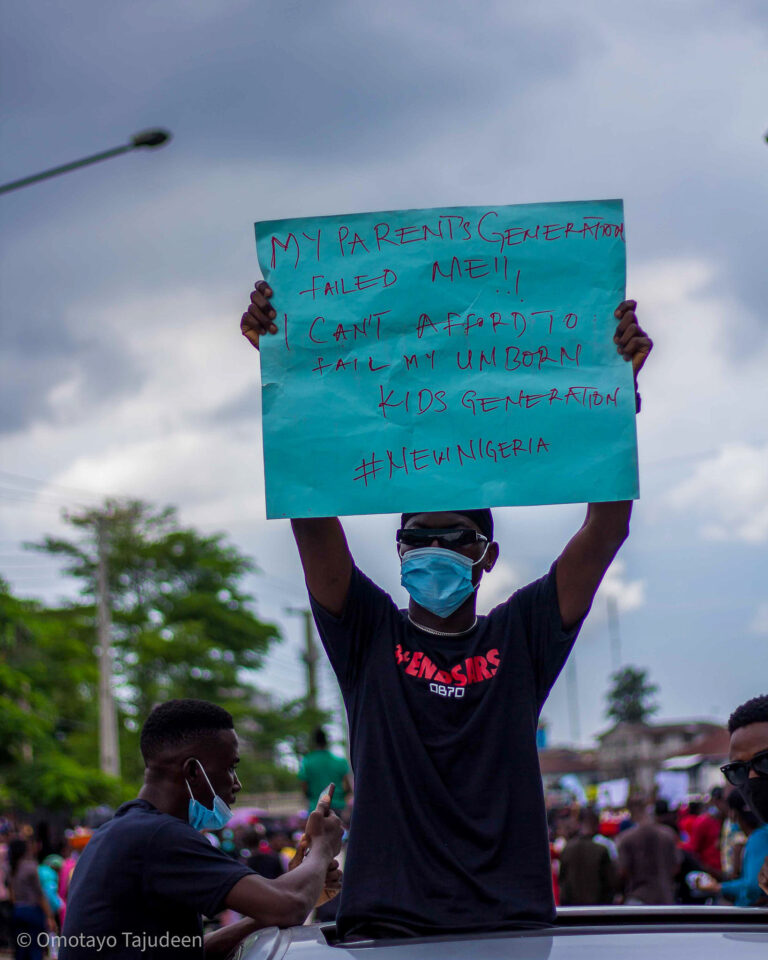 MY PARENT'S GENERATION
FAILED ME!!!
I CAN'T AFFORD TO
FAIL MY UNBORN
KIDS GENERATION
#NEWNIGERIA
#ENDSARS
0870
© Omotayo Tajudeen